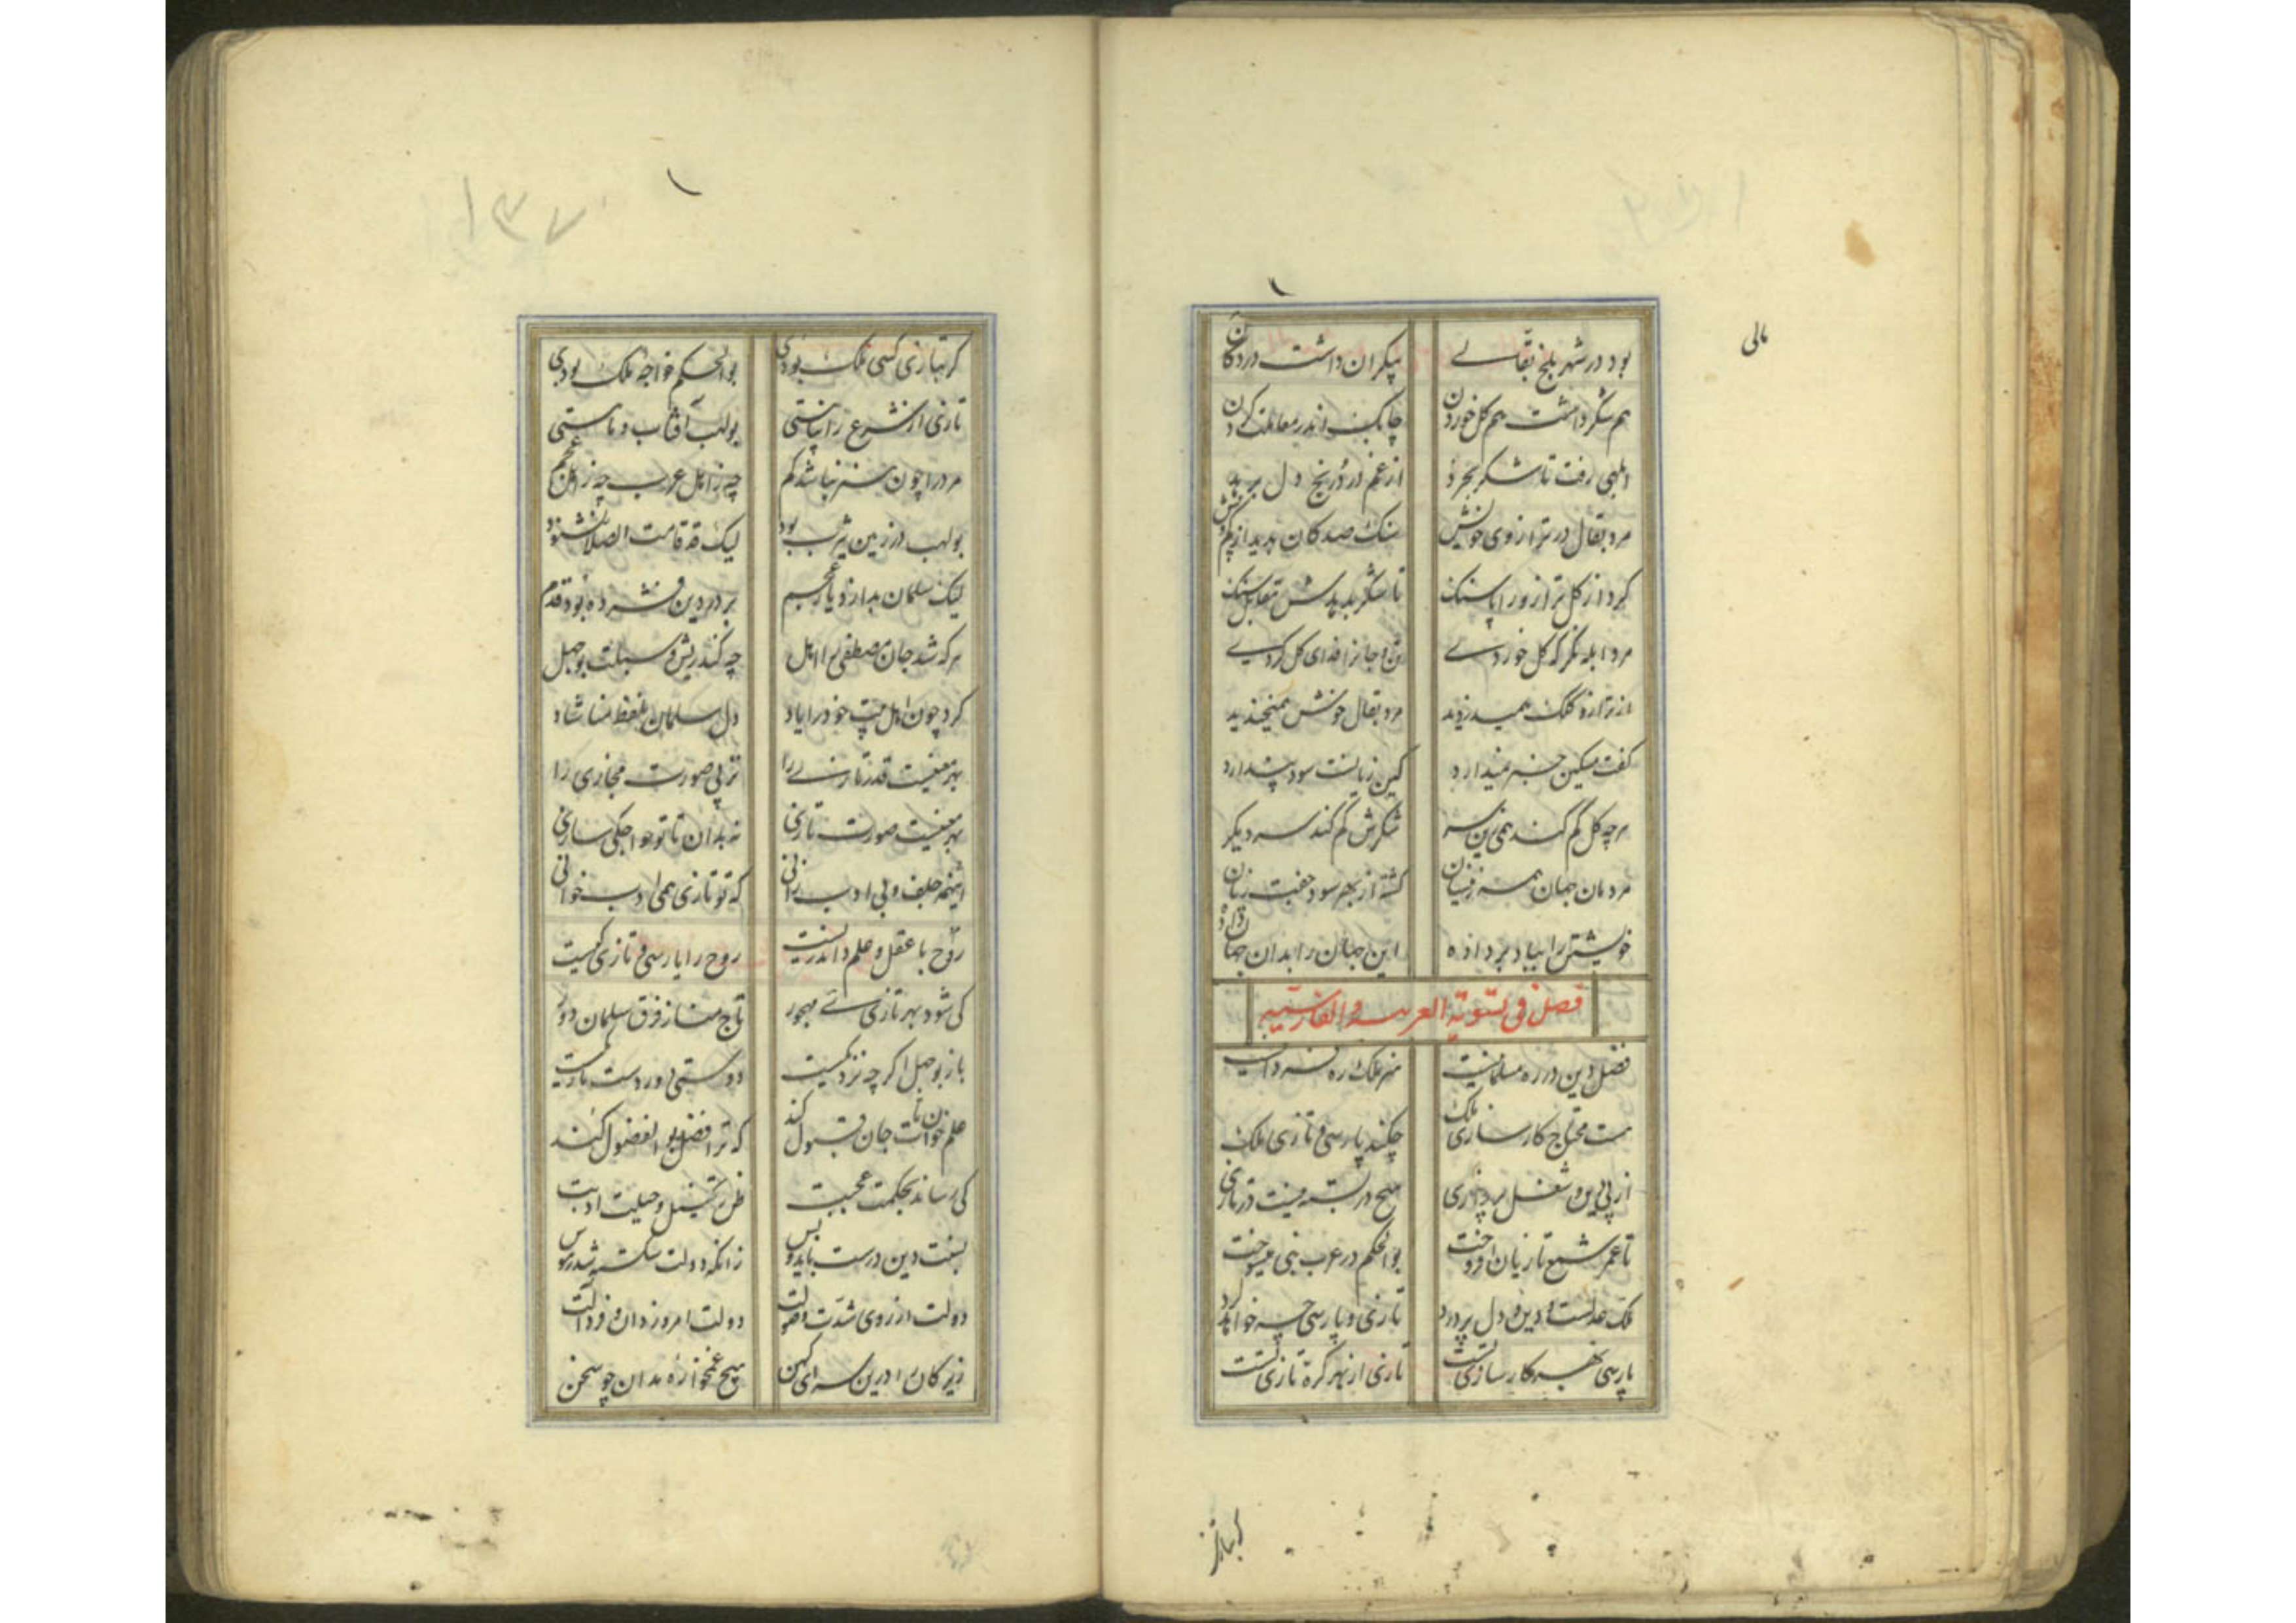 مالی
بود در شهر بلخ بقالے بیکران داشت در دکان
هم شکر داشت هم کل خوردن چابک اندر معاملت کردن
ابلهی رفت تا شکر بخرد از غم درد و رنج دل ببرد
مرد بقال در ترازوی خویش سنک صدکان پدید از کم و بیش
کرد از کل ترازو را پاسنک تا شکر بدهدش مقابل سنک
مرد ابله مکر که کل خوردے تن و جانرا فدای کل کردے
از ترازو کلک همیدزدید مرد بقال خوش همیخندید
کفت مسکین خبر نمیدارد کین زیانست سود پندارد
هرچه کل کم کند همی زین سر شکرش کم کند سر دیکر
مردمان جهان همه زینسان کشته از بهر سود جفت زیان
خویشتن را بباد بر داده این جهان را بدان جهان
فصل فی تسویة العربیه والفارسیه
فضل دین در ره مسلمانیست هنر ملک ره
هست محتاج کارسازی ملک چکند پارسی و تازی ملک
از پی دین و شغل پردازی هیچ در بسته نیست در تازی
تا عمر شمع تازیان افروخت بوالحکم در عرب همیسوخت
ملک عدلست و دین دل پر درد تازی و پارسی چه خواهد کرد
پارسی بهر کارسازی تست تازی از بهر کره تازی تست
کر بتازی
۱۳۷
کر بتازی کسی ملک بودی بوالحکم خواجه ملک بودی
تازی ار شرع را پناستی بولهب آفتاب و ماستی
مرد را چون هنر نباشد کم چه ز اهل عرب چه ز اهل عجم
بولهب در زمین یثرب بود لیک قد قامت الصلا نشنود
لیک سلمان بد از دیار عجم بر در دین فشرده بود قدم
هر که شد جان مصطفی را اهل چه کند ریش و سبلت بوجهل
کرد چون اهل بیت خود را یاد دل سلمان بلفظ منا شاد
بهر معنیست قدر تازی را نز پی صورت مجازی را
بهر معنیست صورت تازی نه بدان تا تو خواجکی سازی
اینهمه جلف و بی ادب زانی که تو تازی همی ادب خوانی
روح با عقل و علم داند زیست روح را پارسی و تازی کیست
کی شود بهر تازیے مهجور تاج منا ز فرق سلمان دور
باز بوجهل اکر چه نزدیکست دوستی دور دست تاریکست
علم خوان تات جان قبول کند که ترا فضل بو الفضول کند
کی رساند بحکمت عجبت ظن تخییل و حیلت ادبت
بیعت دین درست باید و بس زانکه دولت شکسته شد
دولت از روی شدت دولت امروز دان و فردا لت
زیرکانرا درین سرای کهن هیچ غمخواره مدان چو سخن